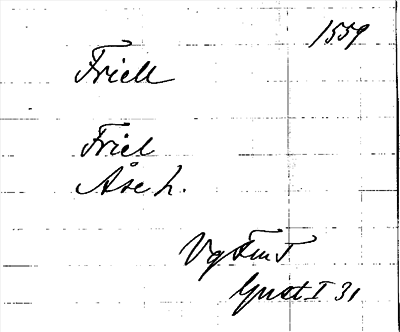 1559
Friell
Friel
Åse h.
VgFmT
Gust I 31